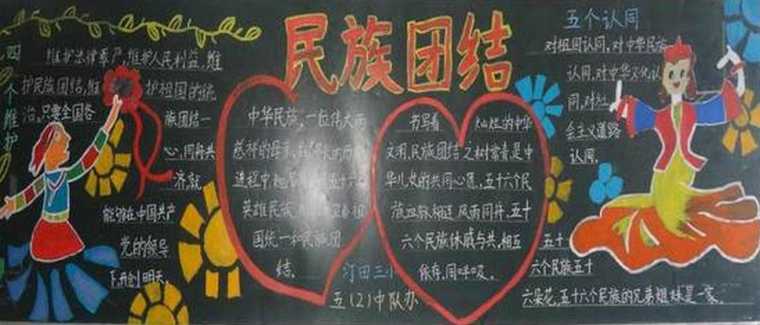 民族团结
四个维护
维护法律尊严,维护人民利益,维
护民族团结,维护祖国的统
治,只要全国各
族团结一
心,同舟共
济,就
能够在中国共产
党的领导
下,开创明天。
中华民族,一位伟大而
慈祥的母亲,在
进程中
英雄民族
国统一和民族团
结。
书写着灿烂的中华
文明,民族团结
华儿女的共同心愿,五十六个民
族血脉相连,风雨同舟,五十
六个民族休戚与共,相互
依存,同呼吸。
五个认同
对祖国认同,对中华民族
认同,对中华文化认
同,对社
会主义道路
认同。
五十
六个民族五十
六朵花,五十六个民族的兄弟姐妹是一家。
汀田三小
五(2)中队办